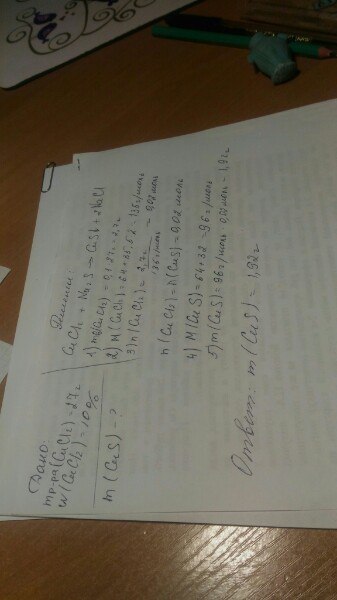 Дано:
mр-ра(CuCl₂)=27г
w(CuCl₂)=10%
m(CuS)-?
Решение:
CuCl₂ + Na₂S → CuS↓ + 2NaCl
1) m(CuCl₂)=0,1·27г=2,7г
2) M(CuCl₂)=64+35,5·2=135г/моль
3) n(CuCl₂)= 2,7г / 135г/моль = 0,02 моль
n(CuCl₂)=n(CuS)=0,02 моль
4) M(CuS)=64+32=96г/моль
5) m(CuS)=96г/моль·0,02 моль=1,92г
Ответ: m(CuS)=1,92г